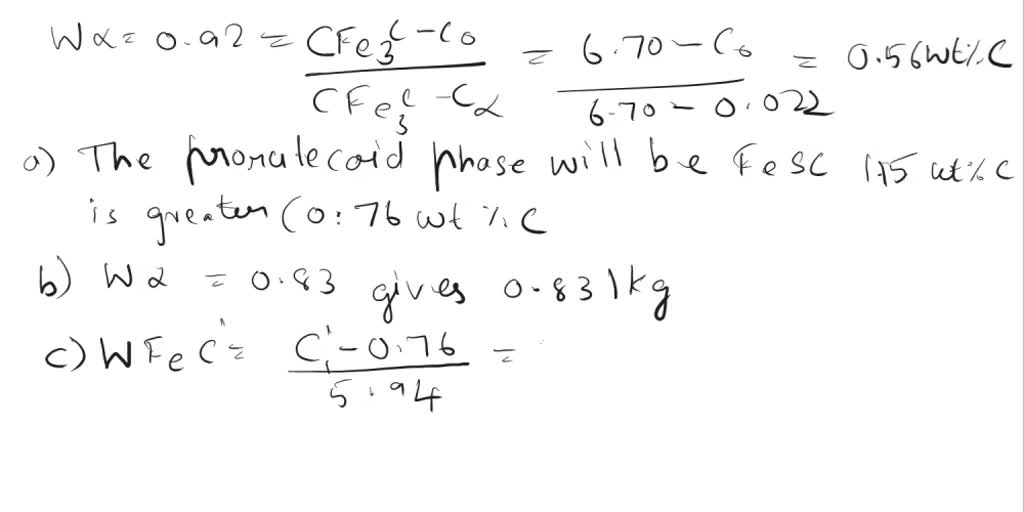 Wα = 0.92 = CFe3C - C0 / CFe3C - Cα = 6.70 - C0 / 6.70 - 0.022 = 0.56wt%C
a) The phase will be FeSC 1.15 wt%C
is greater (0.76 wt % C
b) Wα = 0.83 gives 0.831kg
c) WFeC' = C1' - 0.76 / 5.94 =